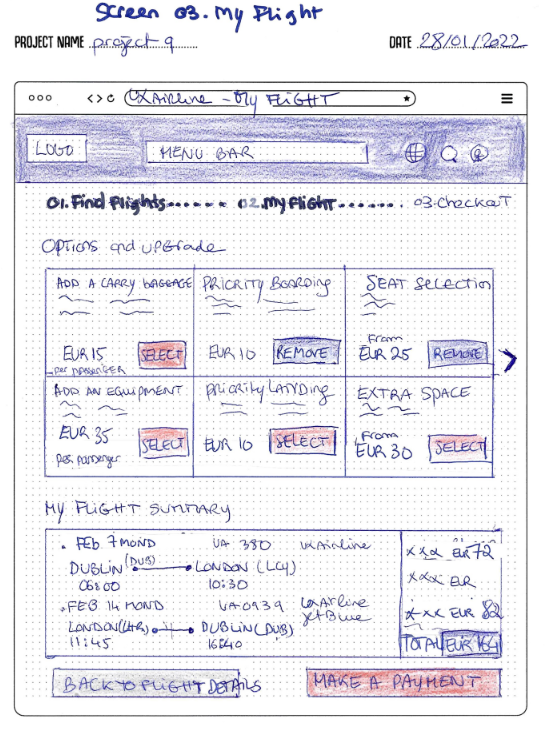 Screen 03. My Flight
PROJECT NAME project 9
DATE 28/01/2022
UXAIRLINE - My FLIGHT
LOGO
MENU BAR
01. Find Flights 02. My Flight 03. CheckouT
OPTIONS and UPGrade
ADD A CARRY BAGGAGE
EUR 15
per passenger
SELECT
PRIORITY BOARDING
EUR 10
REMOVE
SEAT Selection
From
EUR 25
REMOVE
ADD AN EQUIPMENT
EUR 35
per passenger
SELECT
PRIORITY LANDING
EUR 10
SELECT
EXTRA SPACE
From
EUR 30
SELECT
MY FLIGHT SUMMARY
FEB 7 MOND UA 380 uxAirline
DUBLIN (DUB) LONDON (LCY)
06:00 10:30
FEB 14 MOND UA0939 uxAirline
jetBlue
LONDON (LHR) DUBLIN (DUB)
11:45 16:40
xxx EUR 72
xxx EUR
xxx EUR 82
TOTAL EUR 164
BACK TO FLIGHT DETAILS
MAKE A PAYMENT